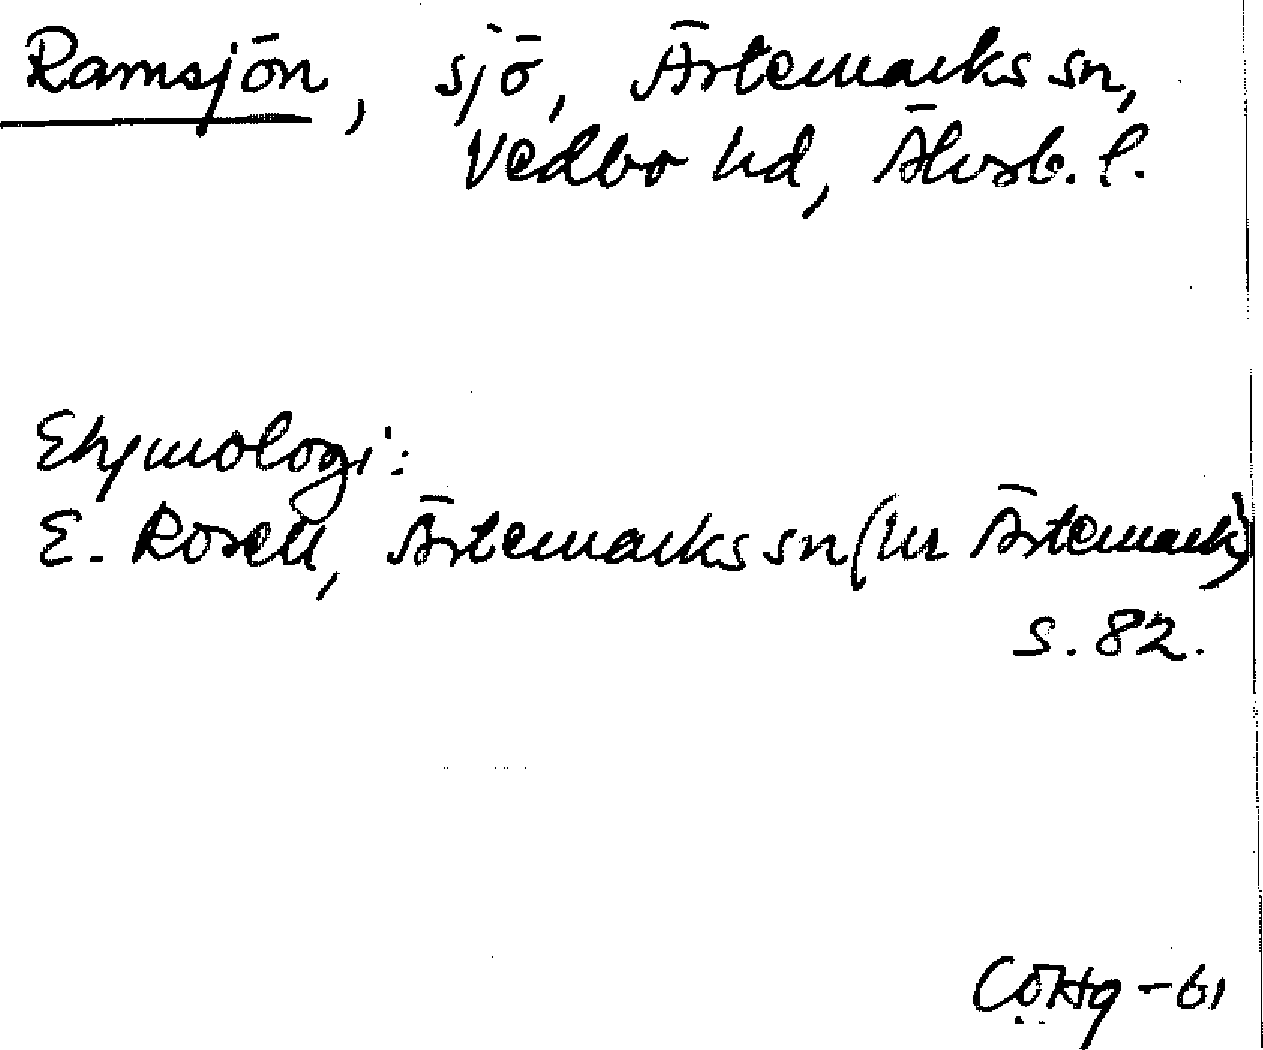 Ramsjön, sjö, Ärtemarks sn,
Vedbo hd, Älvsb. l.
Etymologi:
E. Rosell, Ärtemarks sn (ur Ärtemark)
s. 82.
-61